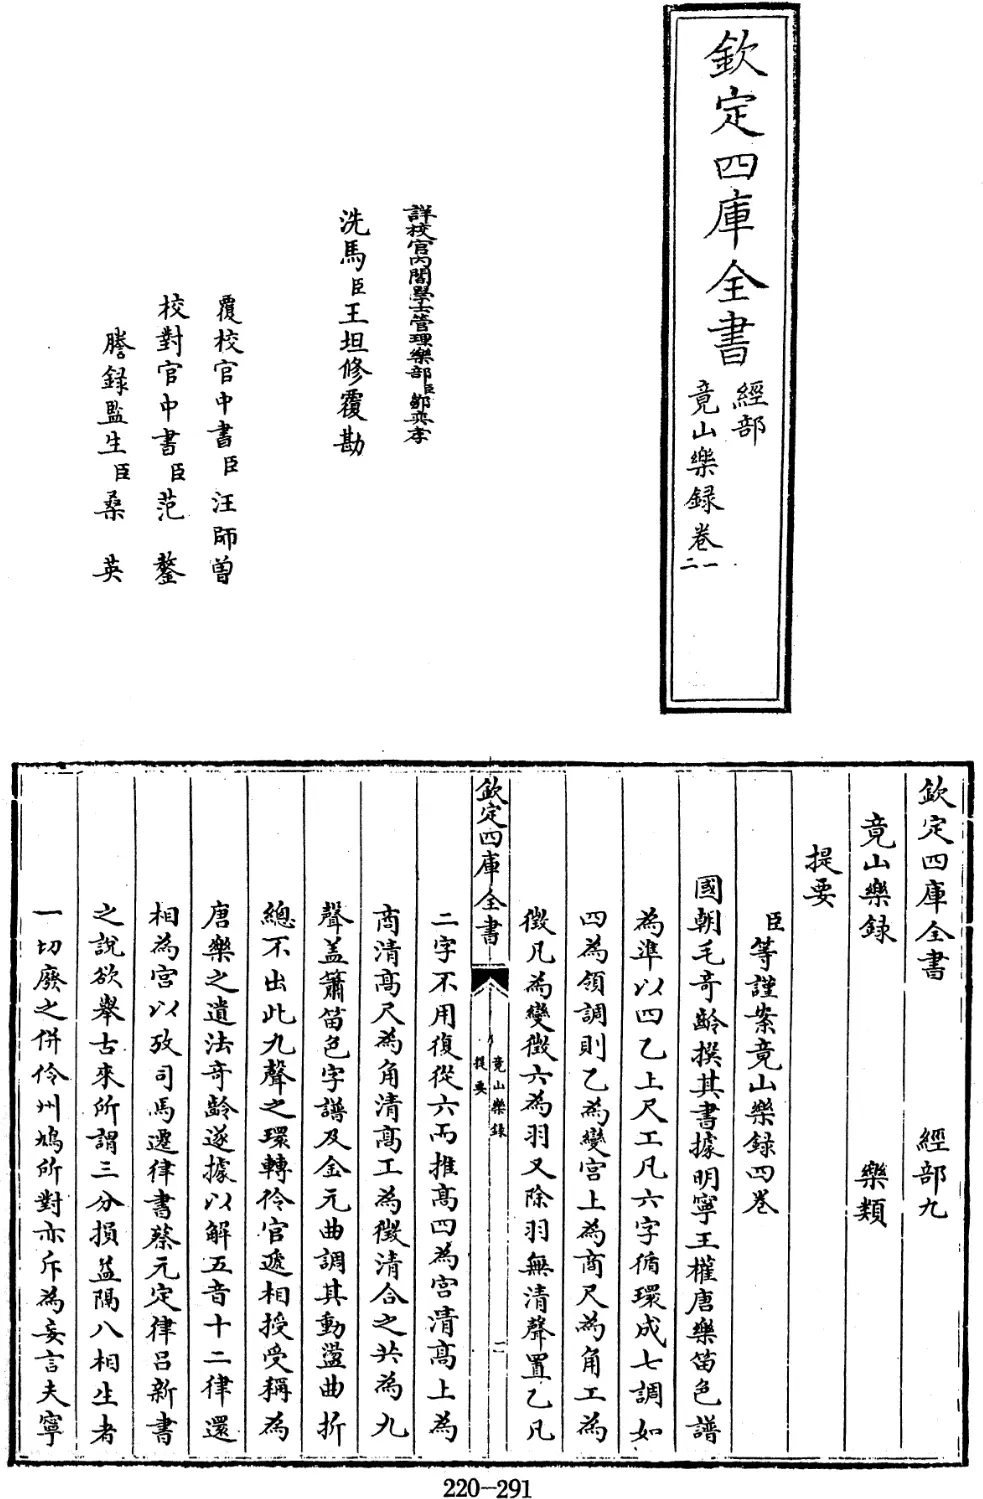 欽定四庫全書
經部
竟山樂録卷一
二
詳校官內閣學士管理樂部臣鄒奕孝
洗馬臣王坦修覆勘
覆校官中書臣汪師曽
校對官中書臣范鏊
謄録監生臣桑英
欽定四庫全書 經部九
竟山樂録 樂類
提要
臣等謹案竟山樂録四卷
國朝毛竒齡撰其書據明寧王權唐樂笛色譜
為準以四乙上尺工凡六字循環成七調如
四為領調則乙為變宫上為商尺為角工為
徴凡為變徴六為羽又除羽無清聲置乙凡
欽定四庫全書
竟山樂録
提要
二
二字不用復從六而推髙四為宫清髙上為
商清髙尺為角清髙工為徴清合之共為九
聲盖簫笛色字譜及金元曲調其動盪曲折
總不出此九聲之環轉伶官遞相授受稱為
唐樂之遺法竒齡遂據以解五音十二律還
相為宫以攷司馬遷律書蔡元定律吕新書
之說欲舉古來所謂三分損益隔八相生者
一切廢之併伶州鳩所對亦斥為妄言夫寧
220-291